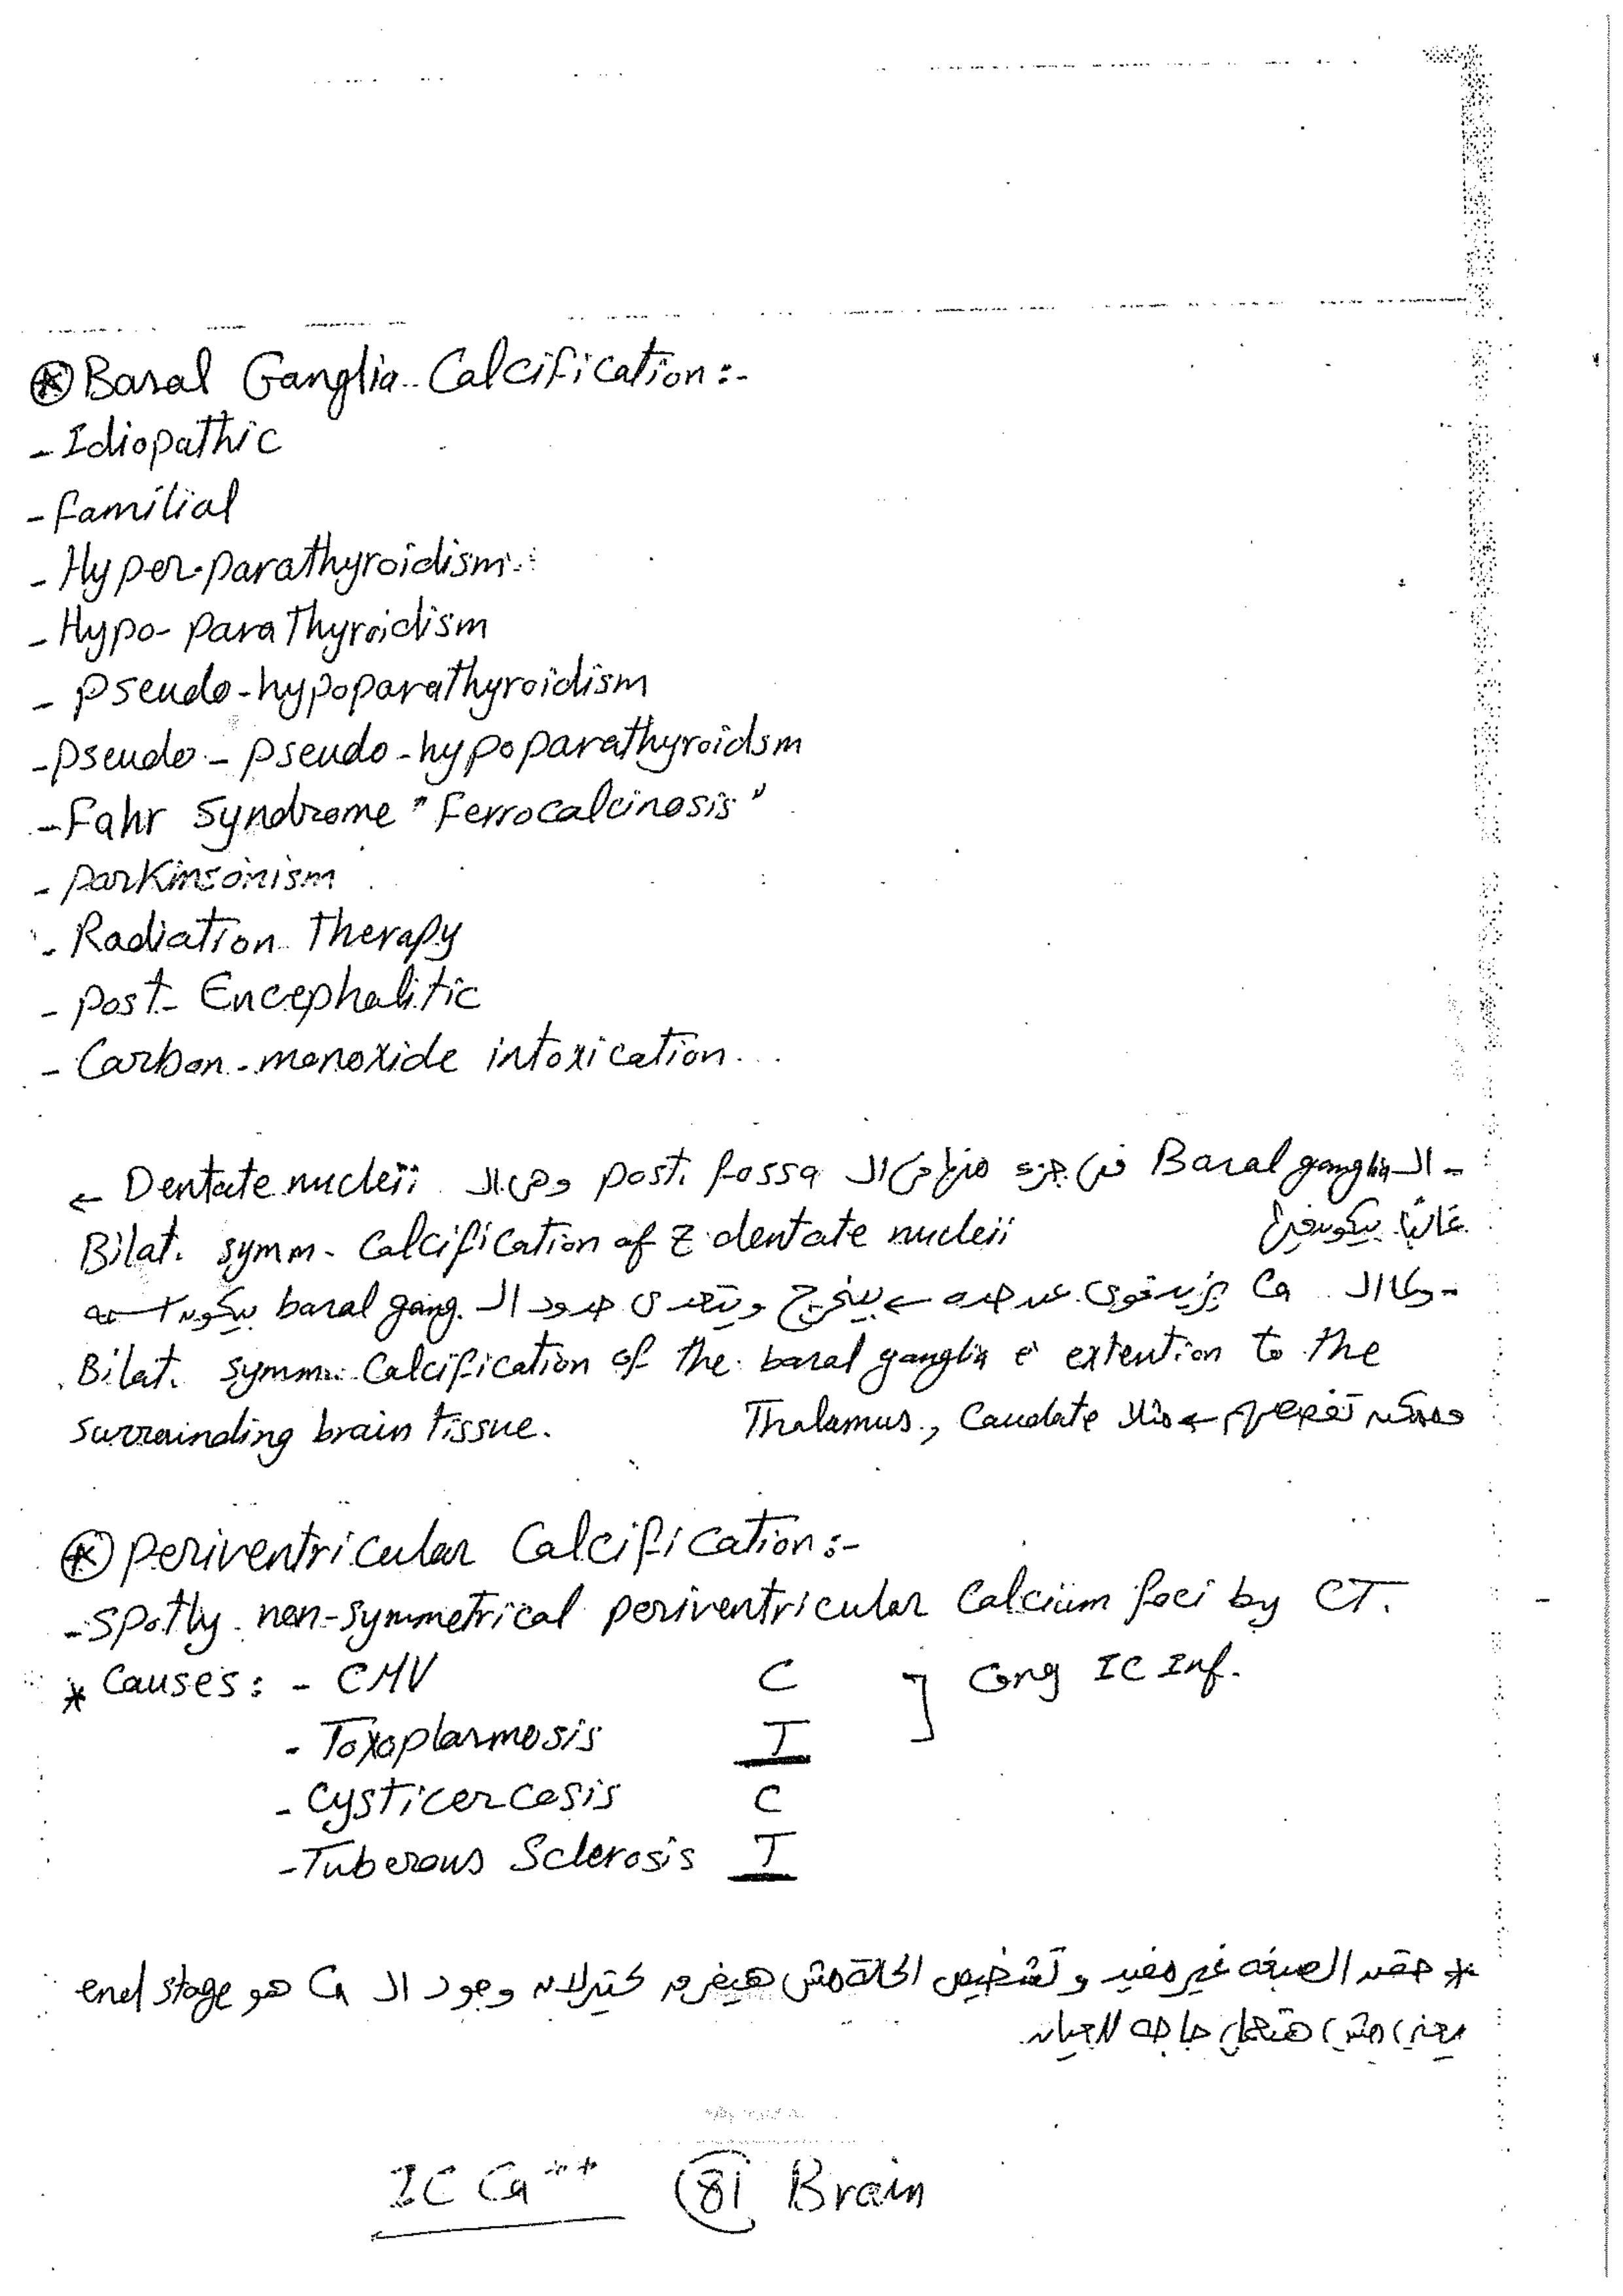 ⊛ Basal Ganglia Calcification:-
- Idiopathic
- familial
- Hyper-parathyroidism
- Hypo-parathyroidism
- pseudo-hypoparathyroidism
- pseudo-pseudo-hypoparathyroidsm
- Fahr Syndrome "Ferrocalcinosis"
- parkinsonism
- Radiation Therapy
- post-Encephalitic
- Carbon-monoxide intoxication...
- الـ Basal ganglia فى جزء منها فى الـ post. fossa وهى الـ Dentate nucleii ←
غالبًا بيكون فيها
Bilat. symm- Calcification of z dentate nucleii
- ولما الـ Ca يزيد قوى عن حده ← بيخرج ويتعدى حدود الـ basal gang. بيكون اسمه
Bilat. symm. Calcification of the basal ganglia c̄ extention to the
surrainding brain tissue.
وممكن ← مثلا Thalamus, Caudate
⊛ periventricular Calcification:-
- Spotly non-symmetrical periventricular Calcium foci by CT.
* Causes: - CMV C ] Cong IC Inf.
- Toxoplasmosis T
- Cysticercosis C
- Tuberous Sclerosis T
* حقن الصبغه غير مفيد وتشخيص الحالة مش هيفرق كتير لان وجود الـ Ca هو end stage
يعنى مش هتعمل حاجه للعيان
IC Ca++ 81 Brain